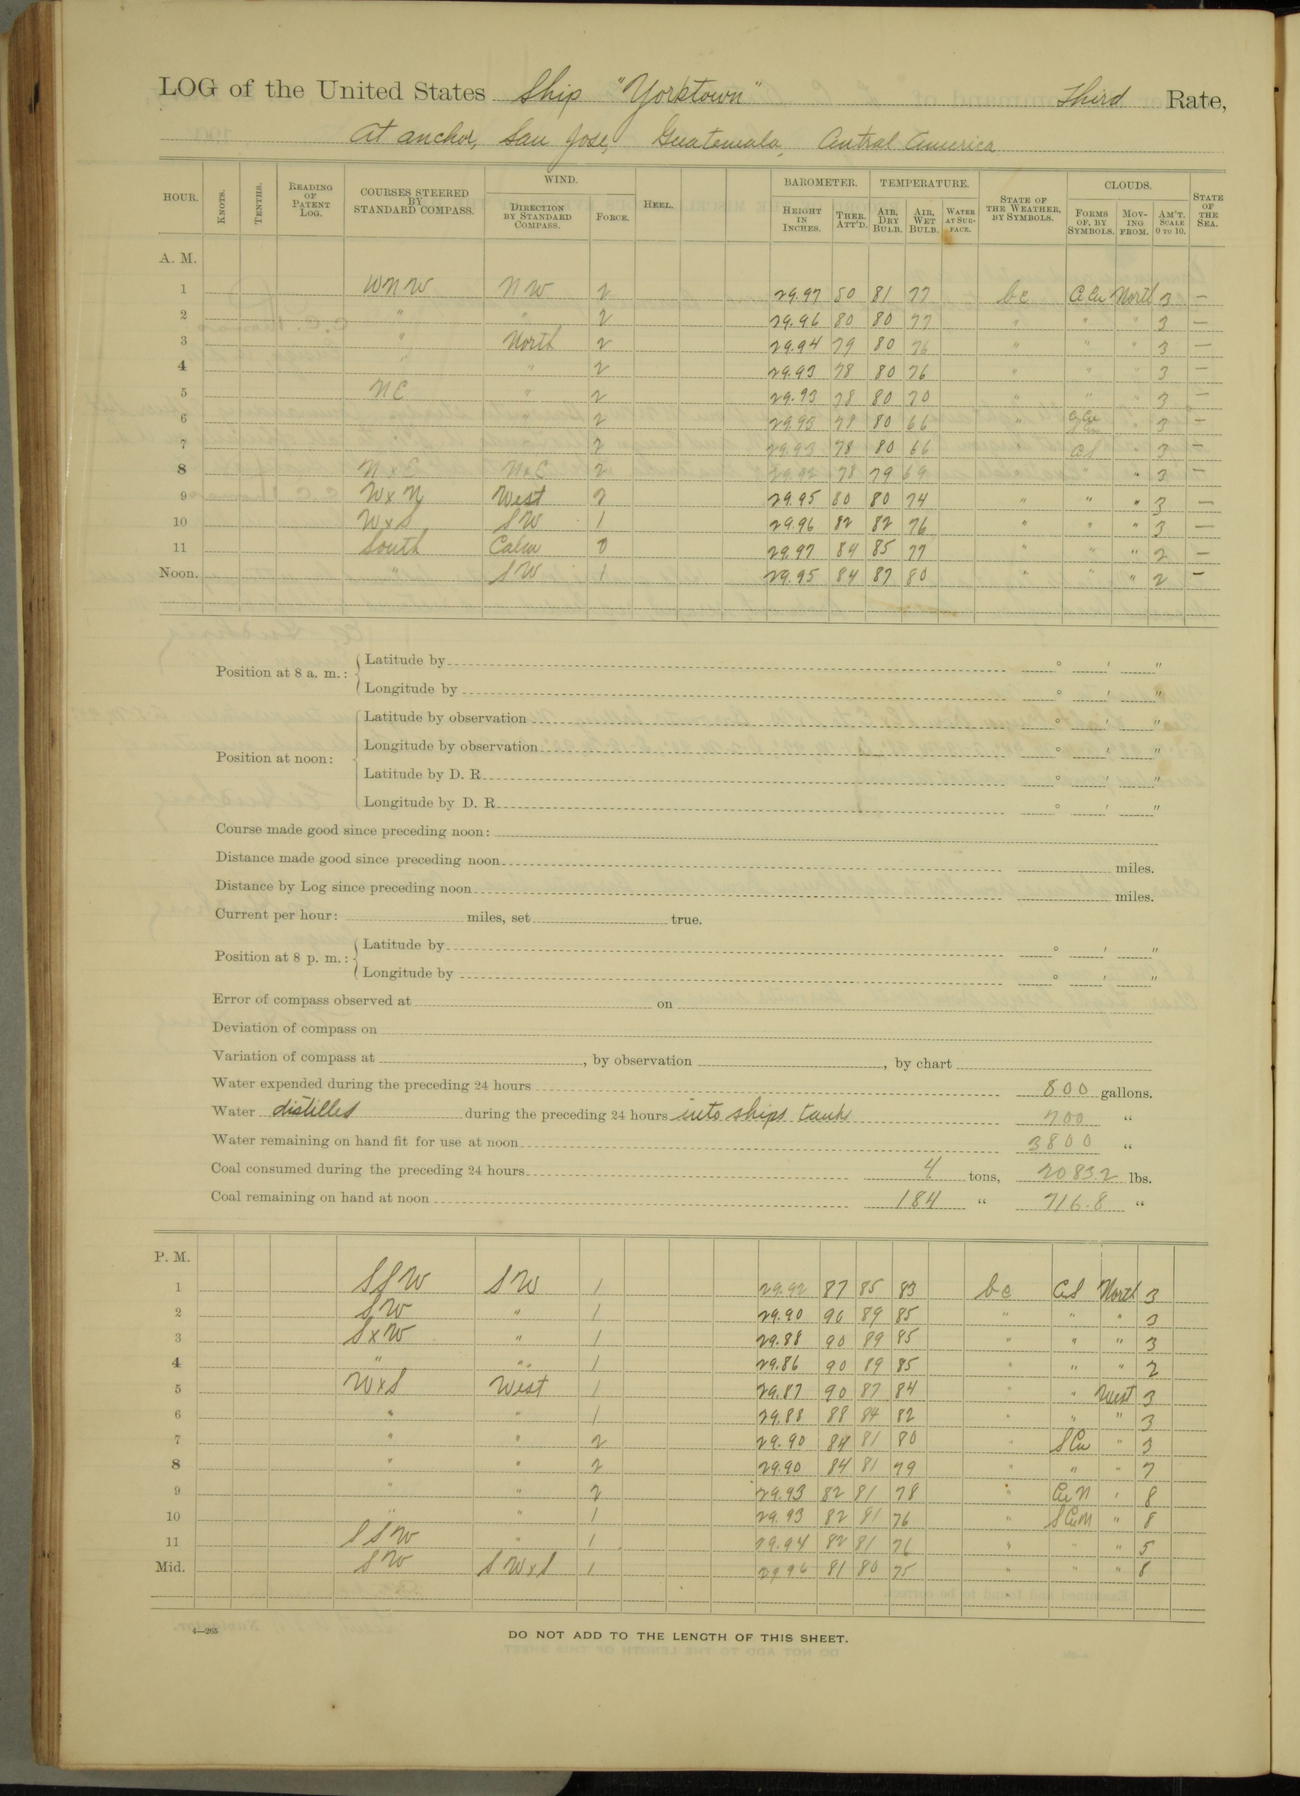 LOG of the United States Ship "Yorktown" Third Rate,
At anchor, San Jose, Guatemala, Central America
HOUR. KNOTS. TENTHS. READING OF PATENT LOG. COURSES STEERED BY STANDARD COMPASS. WIND. DIRECTION BY STANDARD COMPASS. FORCE. HEEL. BAROMETER. HEIGHT IN INCHES. THER. ATT'D. TEMPERATURE. AIR, DRY BULB. AIR, WET BULB. WATER AT SURFACE. STATE OF THE WEATHER, BY SYMBOLS. CLOUDS. FORMS OF, BY SYMBOLS. MOVING FROM. AM'T. SCALE 0 TO 10. STATE OF THE SEA.
A. M.
1 WNW NW 2 29.97 80 81 77 bc C Cu North 3 —
2 " " 2 29.96 80 80 77 " " " 3 —
3 " North 2 29.94 79 80 76 " " " 3 —
4 " " 2 29.93 78 80 76 " " " 3 —
5 NE " 2 29.93 78 80 70 " " " 3 —
6 " 2 29.93 78 80 66 " " 3 —
7 2 29.93 78 80 66 CS " 3 —
8 NxE NxE 2 29.92 78 79 69 " 3 —
9 WxN West 2 29.95 80 80 74 " " " 3 —
10 WxS SW 1 29.96 82 82 76 " " " 3 —
11 South Calm 0 29.97 84 85 77 " " " 2 —
Noon. " SW 1 29.95 84 87 80 " " " 2 —
Position at 8 a. m.: Latitude by ° ' "
Longitude by ° ' "
Position at noon: Latitude by observation ° ' "
Longitude by observation ° ' "
Latitude by D. R. ° ' "
Longitude by D. R. ° ' "
Course made good since preceding noon:
Distance made good since preceding noon miles.
Distance by Log since preceding noon miles.
Current per hour: miles, set true.
Position at 8 p. m.: Latitude by ° ' "
Longitude by ° ' "
Error of compass observed at on
Deviation of compass on
Variation of compass at , by observation , by chart
Water expended during the preceding 24 hours 800 gallons.
Water distilled during the preceding 24 hours into ships tank 700 "
Water remaining on hand fit for use at noon 3800 "
Coal consumed during the preceding 24 hours 4 tons, 2083.2 lbs.
Coal remaining on hand at noon 184 " 716.8 "
P. M.
1 SSW SW 1 29.92 87 85 83 bc CS North 3
2 SW " 1 29.90 90 89 85 " " " 3
3 SxW " 1 29.88 90 89 85 " " " 3
4 " " 1 29.86 90 89 85 " " " 2
5 WxS West 1 29.87 90 87 84 " " West 3
6 " " 1 29.88 88 84 82 " " " 3
7 " " 2 29.90 84 81 80 " SCu " 3
8 " " 2 29.90 84 81 79 " " " 7
9 " " 2 29.93 82 81 78 " CuN " 8
10 " " 1 29.93 82 81 76 " SCuN " 8
11 SSW " 1 29.94 82 81 76 " " " 5
Mid. SW SWxS 1 29.96 81 80 75 " " " 8
4—265
DO NOT ADD TO THE LENGTH OF THIS SHEET.